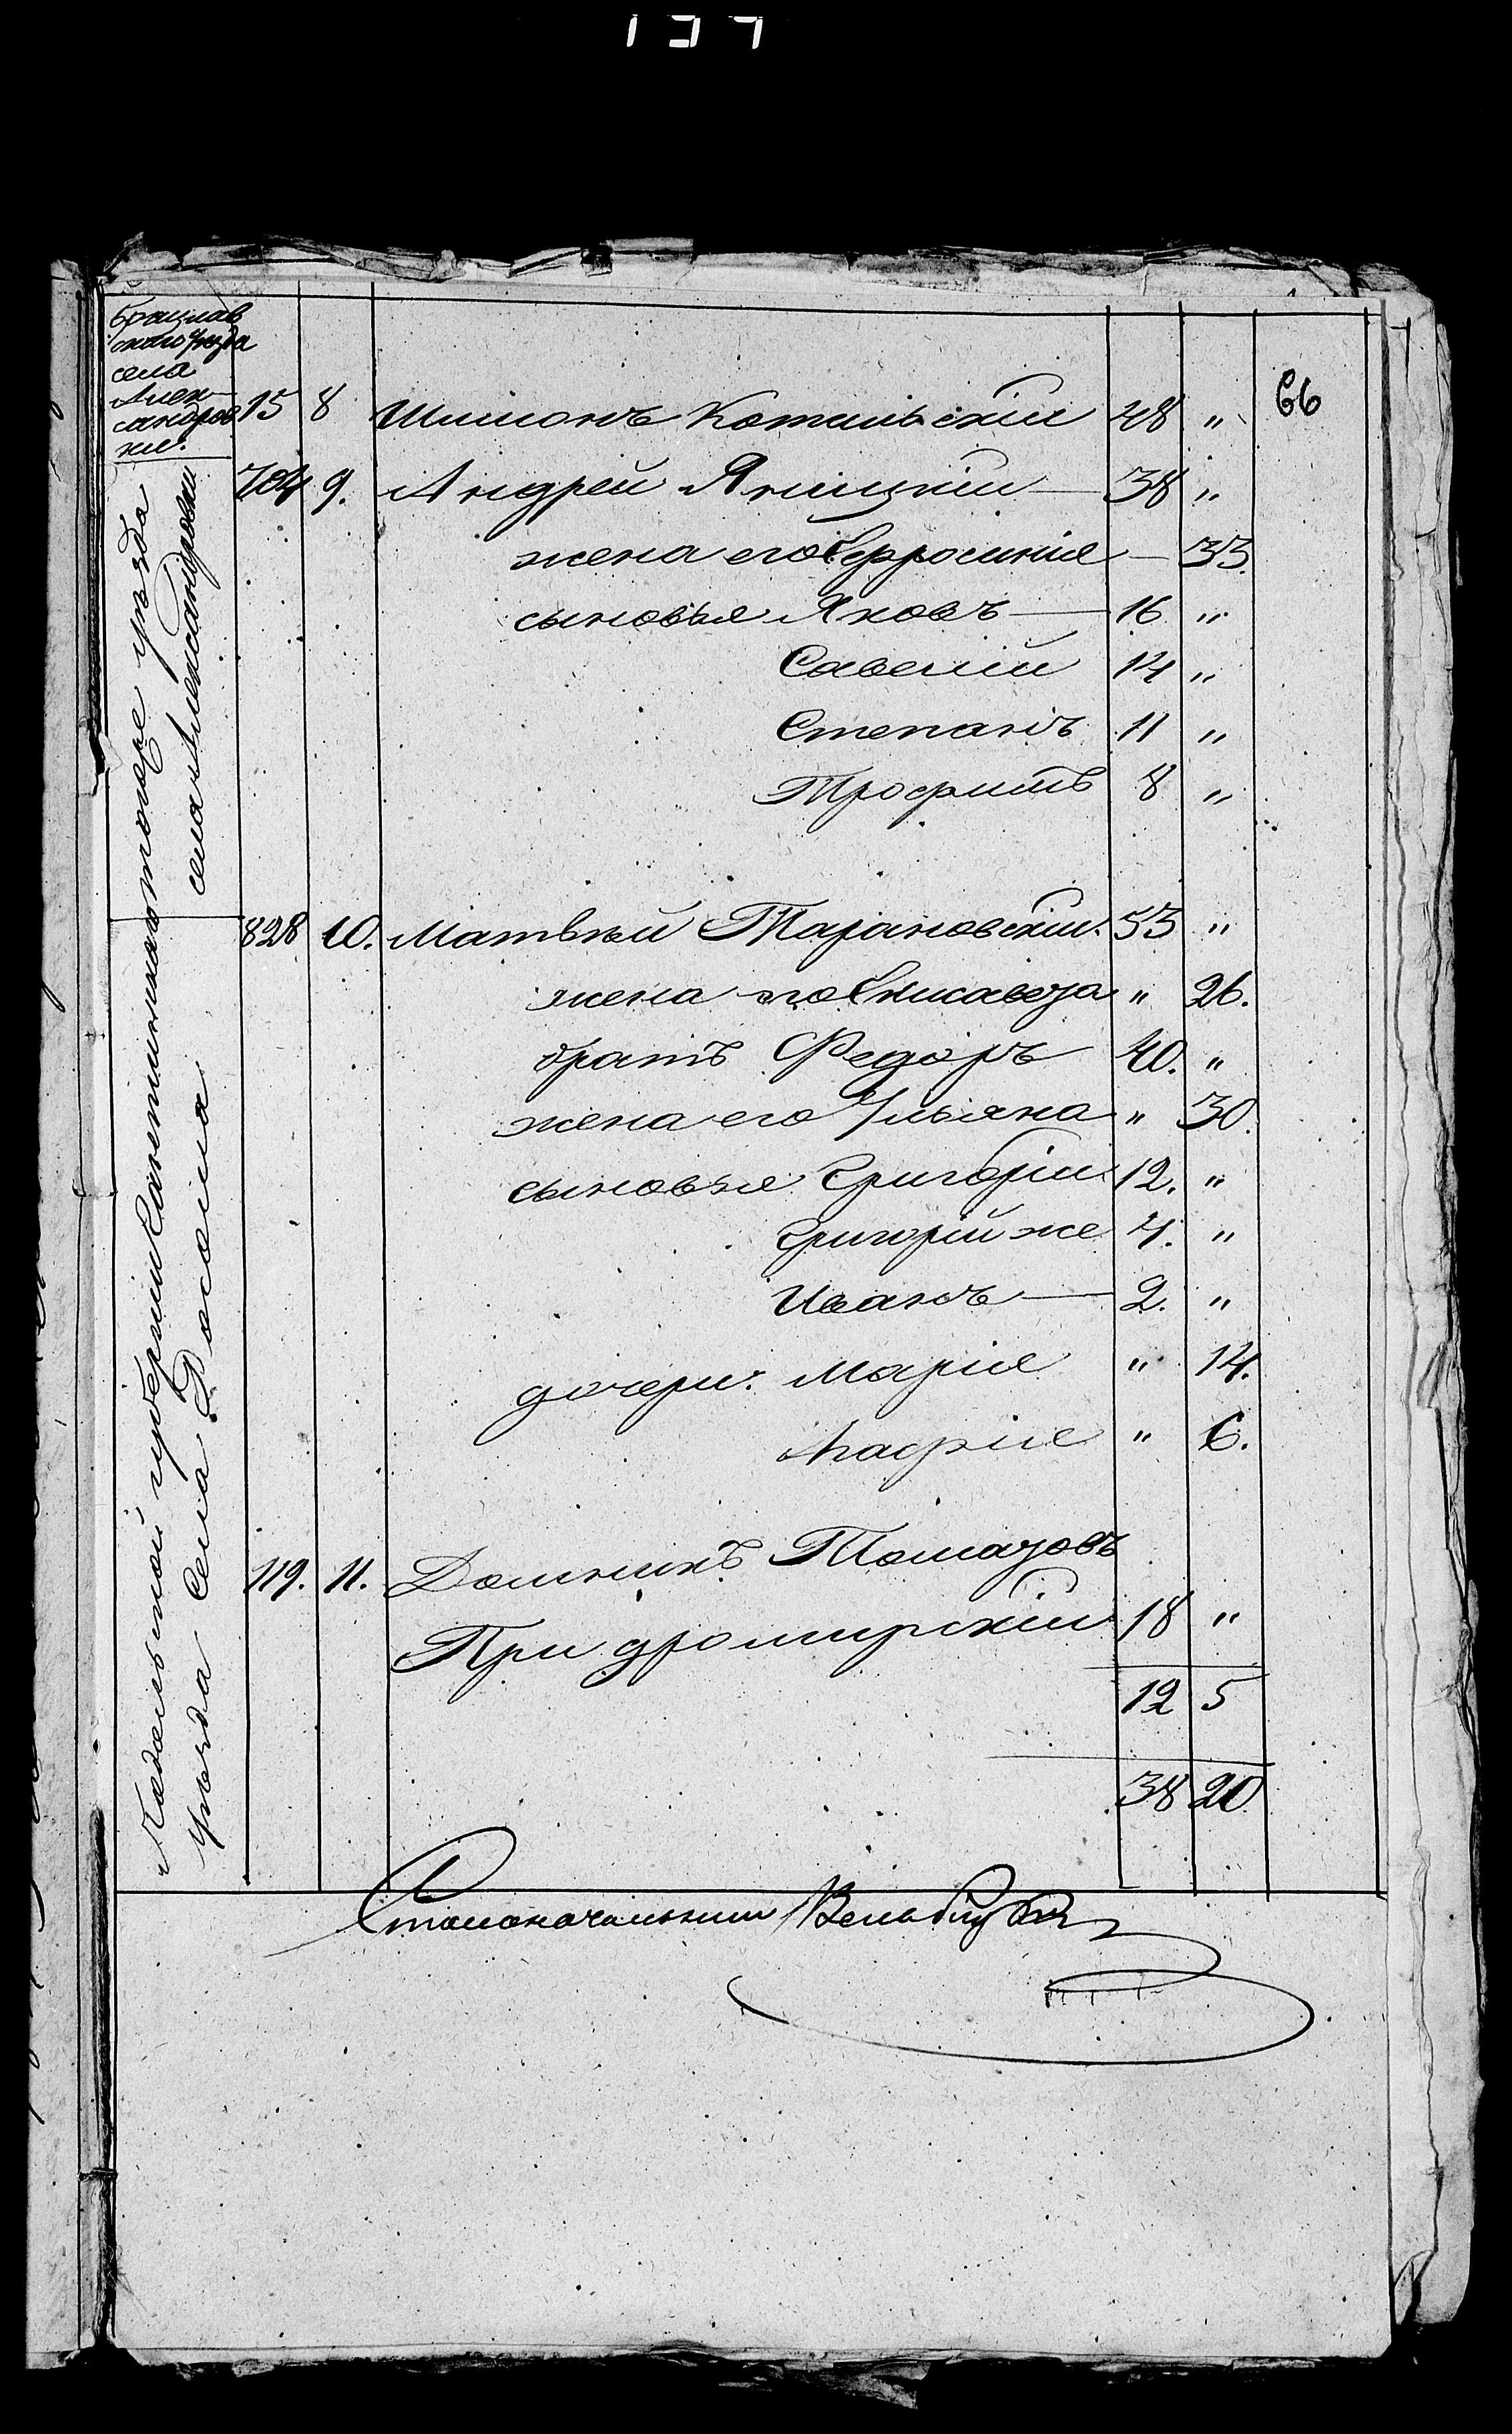 66
Брацлав
скаго уѣзда
села
Алек-
сандров
ки.
15 8 Шимонъ Котильскій 48 "
тогоже уѣзда
села Александровки
724 9. Андрей Яницкій — 38 "
жена его Ефросинія — 33.
сыновья Яковъ — 16 "
Савелій 14 "
Степанъ 11 "
Трофимъ 8 "
Подольской губерніи
уѣзда Села
828 10. Матвѣй Тарановскій. 53 "
жена его Елисавета " 26.
братъ Федоръ 40. "
жена его Ульяна " 30.
сыновья Григорій 12. "
Григорій же 4. "
Иванъ — 2. "
дочери: Марія " 14.
Агафія " 6.
119. 11. Доминикъ Томашовъ
Придромирскій 18 "
12 5
38 20
Столоначальникъ